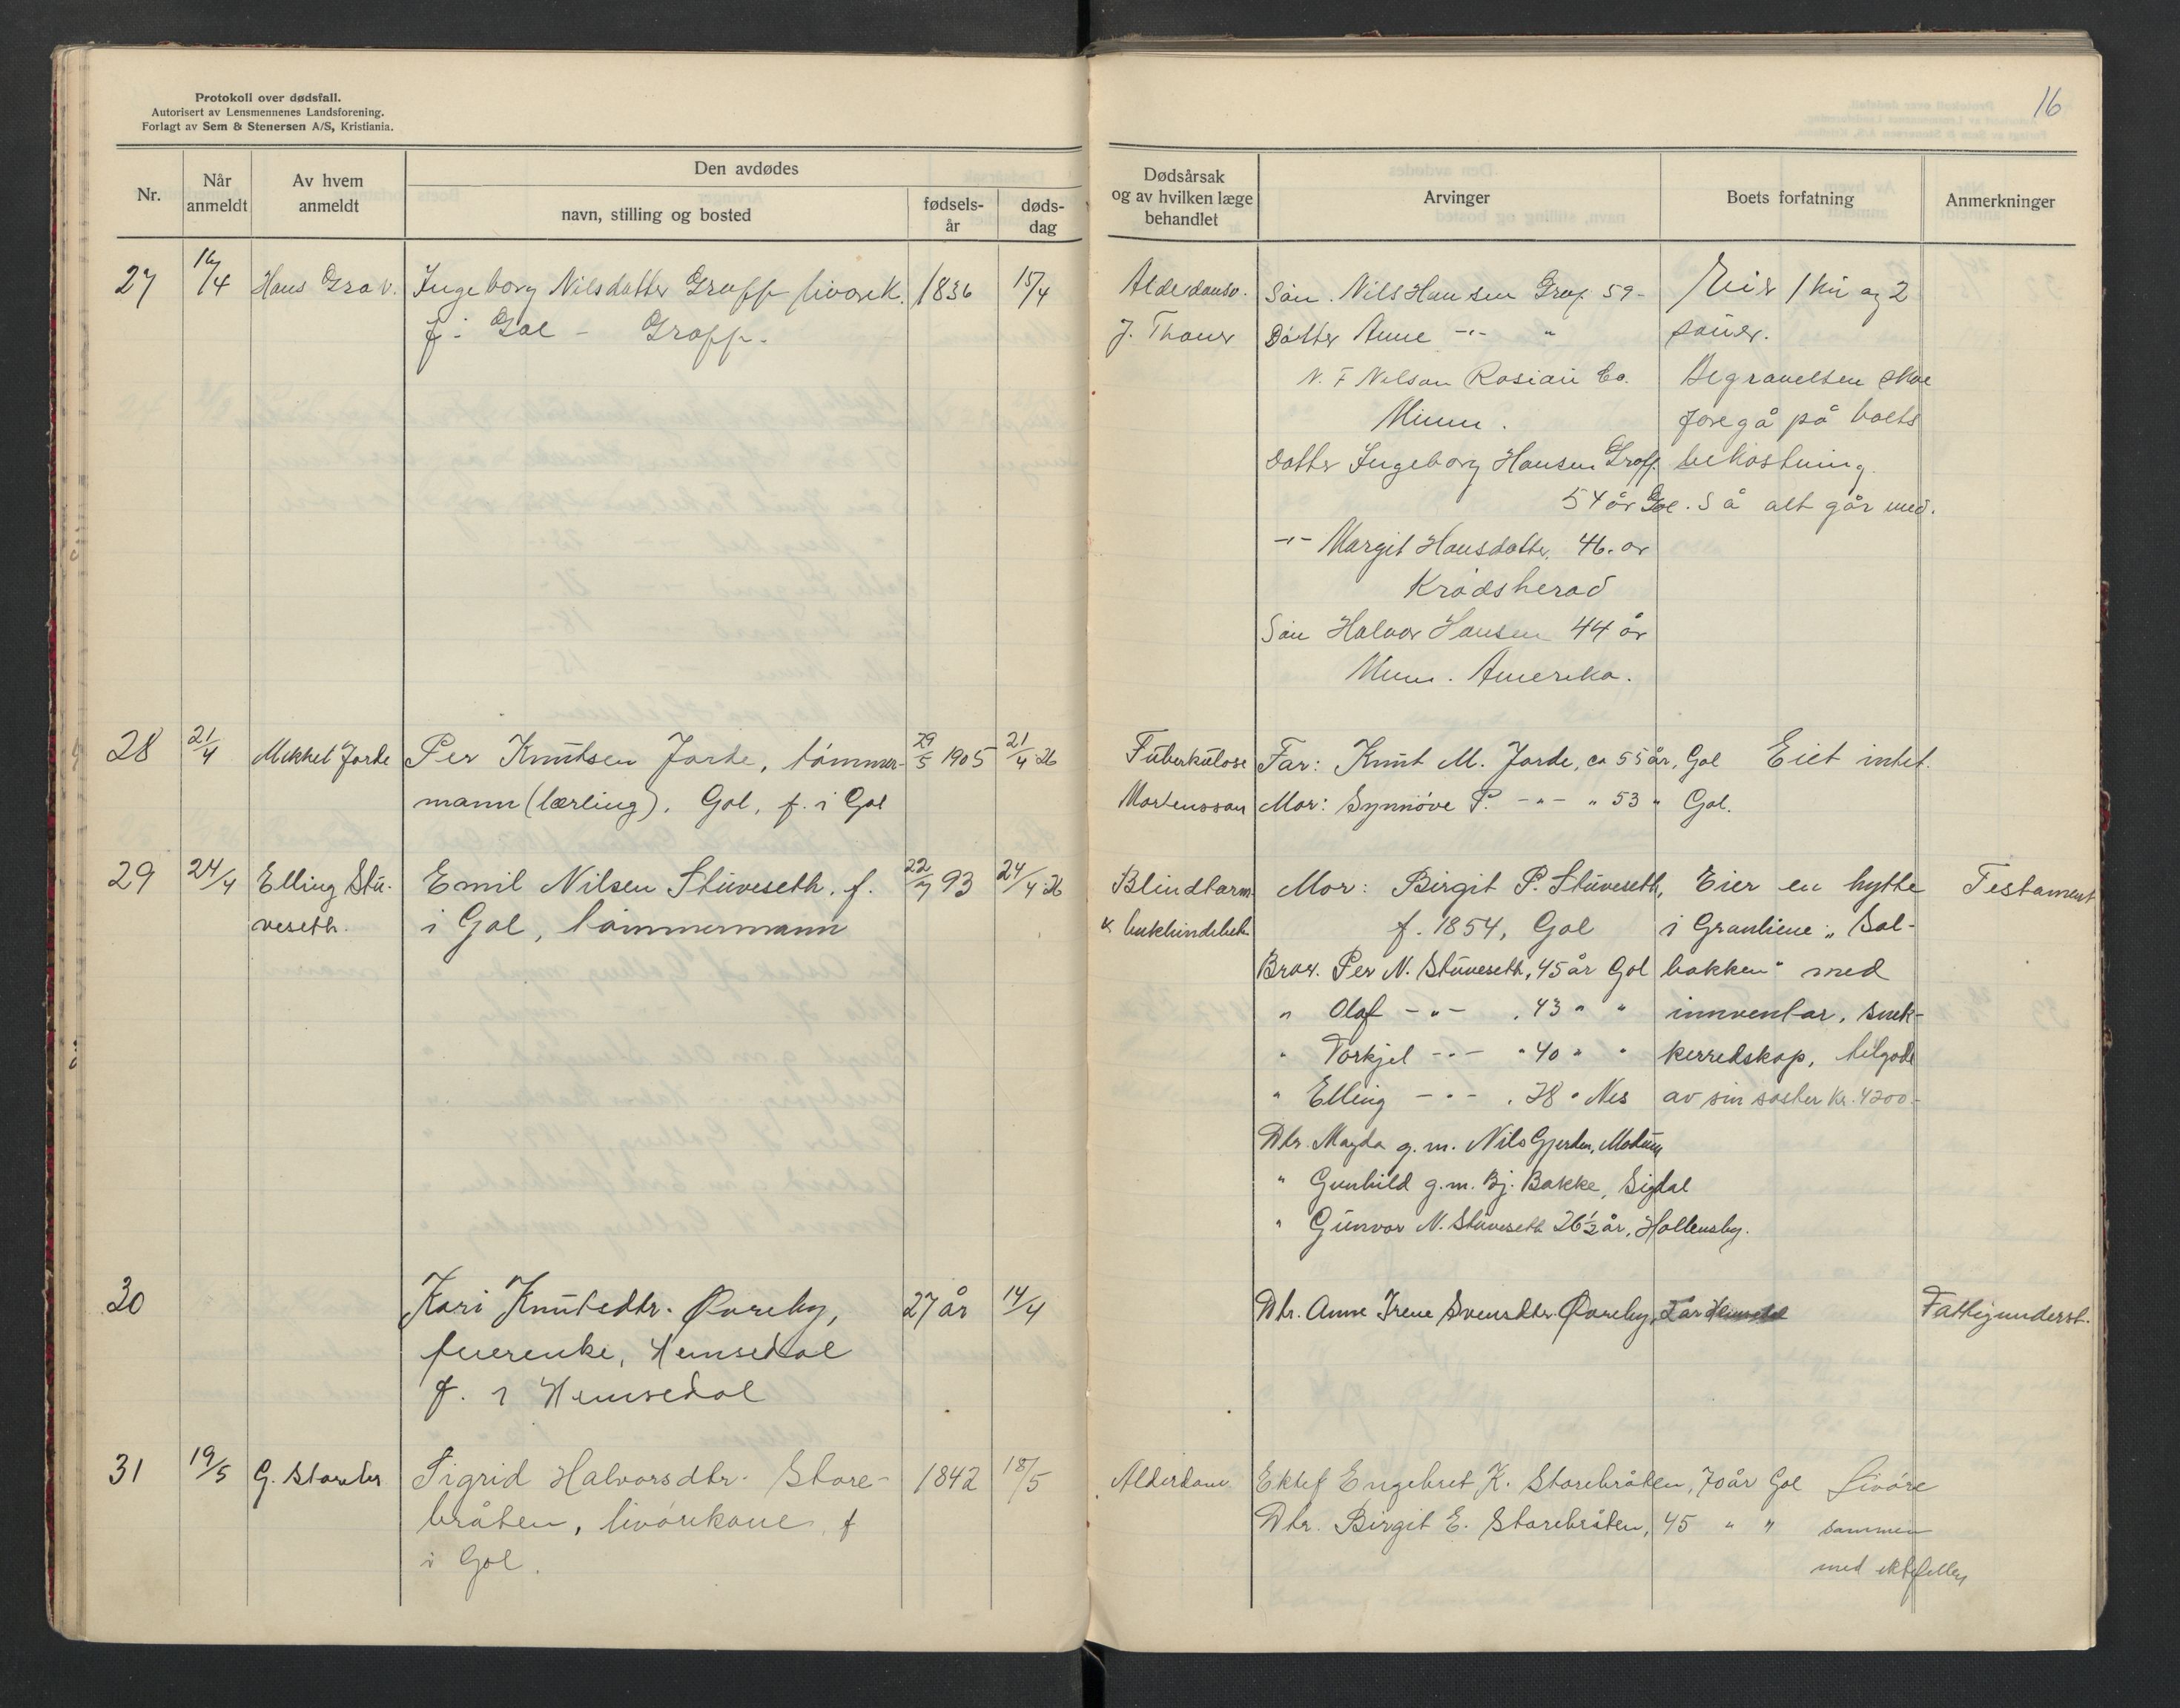 Protokoll over dødsfall.
Autorisert av Lensmennenes Landsforening.
Forlagt av Sem & Stenersen A/S, Kristiania.
Nr.
Når anmeldt
Av hvem anmeldt
Den avdødes
navn, stilling og bosted
fødsels-år
døds-dag
16
Dødsårsak og av hvilken læge behandlet
Arvinger
Boets forfatning
Anmerkninger
27 16/4 Hans Grøv. Ingeborg Nilsdatter Grøff livørek. 1836 15/4
f. i Gol - Grøff.
Alderdomsv. Søn Nils Hansen Grøf 59 - Eier 1 ku og 2
J. Thoner Datter Anne -"- " sauer.
N. F Nelson Rosiau Co. Begravelsen skal
Minn. foregå på boets
Datter Ingeborg Hansen Grøff. bekostning.
54 år Gol. Så alt går med.
-"- Margit Hansdatter, 46. år
Krødsherad
Søn Halvor Hansen 44 år
Minn. Amerika.
28 21/4 Mikkel Jorde Per Knutsen Jorde, tømmer- 29/5 1905 21/4 26
mann (lærling), Gol, f. i Gol
Tuberkulose Far: Knut M. Jorde, ca 55 år, Gol Eiet intet.
Mortensson Mor: Synnøve P. -"- " 53 " Gol.
29 24/4 Elling Stu- Emil Nilsen Stuveseth. f. 22/7 93 24/4 26
veseth. i Gol, tømmermann
Blindtarm Mor: Birgit P. Stuveseth, Eier en hytte Testament
& bukhindebet. f. 1854, Gol i Granliene "Sol-
Bror. Per N. Stuveseth, 45 år Gol bakken" med
" Olaf -"- , 43 " " innventar, snek-
" Torkjel -"- " 40 " " kerredskap, tilgode
" Elling -"- , 38 " Nes av sin søster kr. 4200.-
Dtr. Magda g. m. Nils Gjerden, Modum
" Gunhild g. m. Bj. Bakke, Sigdal
" Gunvor N. Stuveseth 26 1/2 år, Hallensby.
30 Kari Knutsdtr. Øvreby, 27 år 14/4
enke, Hemsedal
f. i Hemsedal
Dtr. Anne Irene Svensdtr. Øvreby, Fattigunderst.
31 19/5 G. Storebr Sigrid Halvorsdtr. Store- 1842 18/5
bråten, livørekone, f
i Gol.
Alderdom Ektef Engebret K. Storebråten, 70 år Gol Livøre
Dtr. Birgit E. Storebråten, 45 " " sammen
med ektefellen